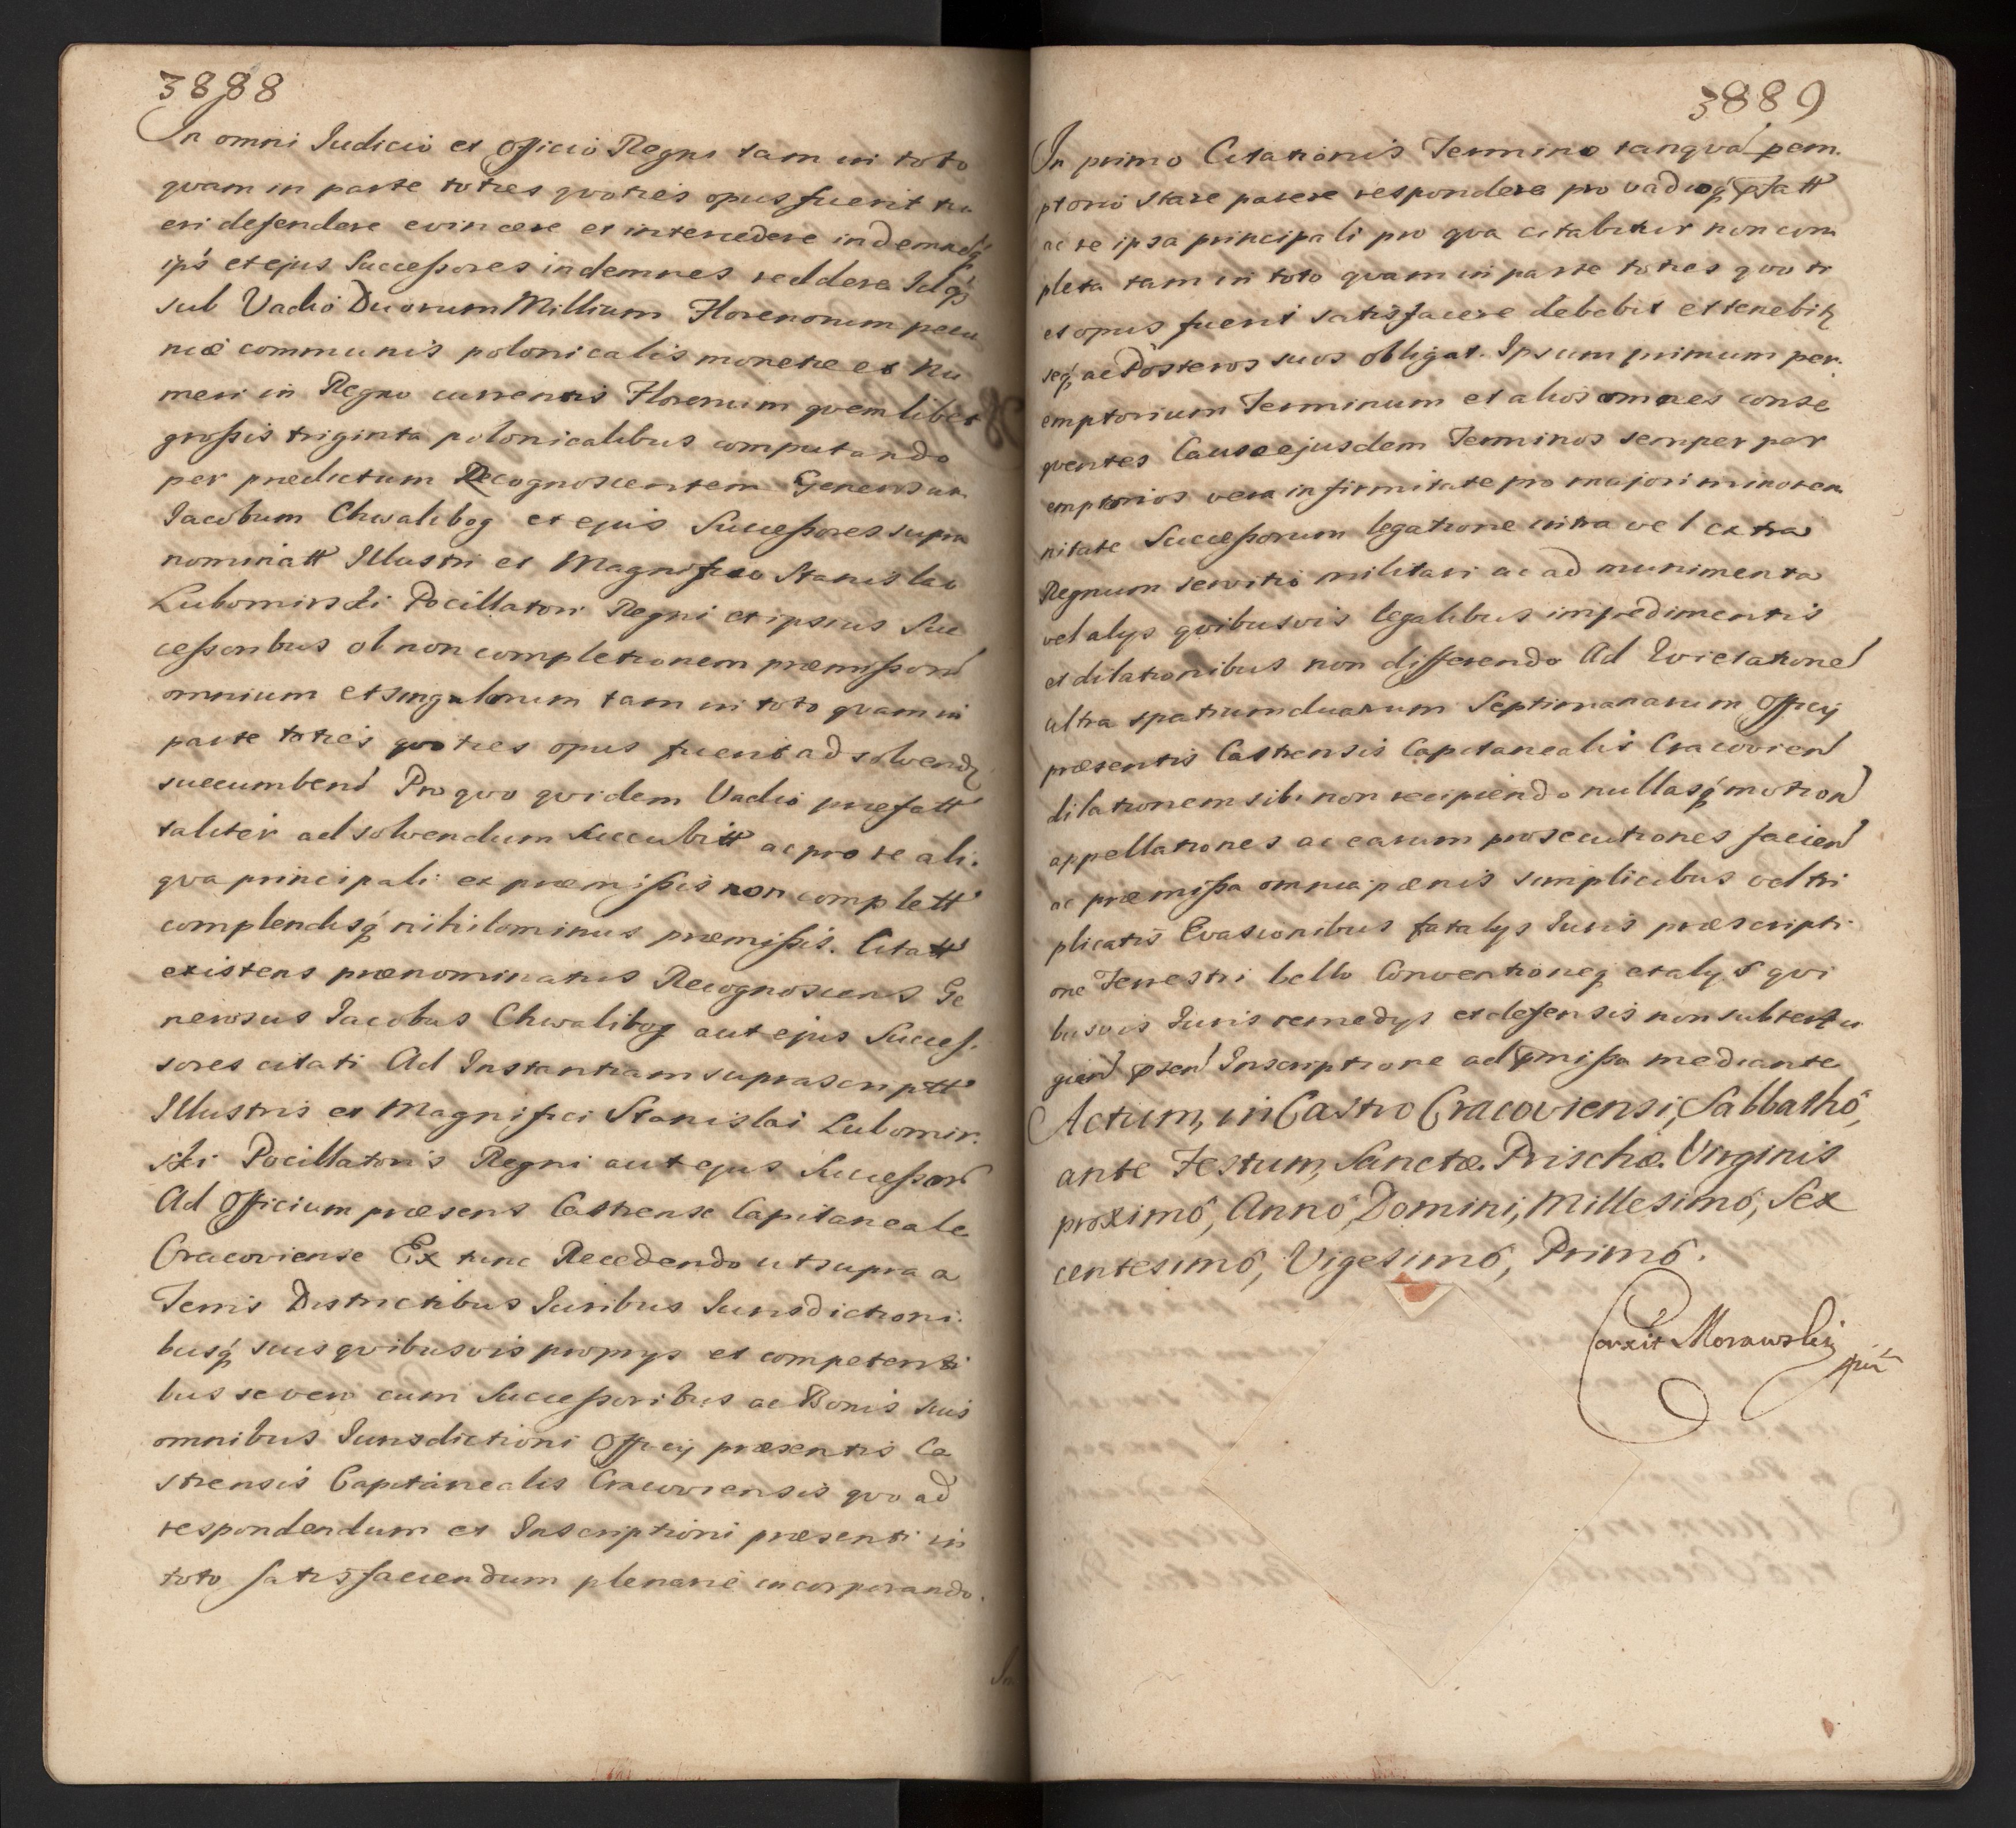 3888
In omni Iudicio et Officio Regni tam in toto
qvam in parte toties qvoties opus fuerit tu
eri defendere evincere et intercedere indemnesq́
ips̄ et ejus Successores indemnes reddere Idq́
sub Vadio Duorum Millium Florenorum pecu
niæ communis polonicalis monetæ et Nu
meri in Regno currentis Florenum qvemlibet
grossis triginta polonicalibus computando
per prædictum Recognoscentem Generosum
Iacobum Chwalibog et ejus Successores supra
nominatt Illustri et Magnifico Stanislao
Lubomirski Pocillatori Regni et ipsius Suc
cessoribus ob non completionem præmissorū
omnium et singulorum tam in toto qvam in
parte toties qvoties opus fuerit ad solvend
succumbend Pro qvo qvidem Vadio præfatt
taliter ad solvendum succubitt ac pro re ali.
qva principali ex præmissis non complett
complendisq́ nihilominus præmissis. Citatt
existens prænominatus Recognoscens Ge
nerosus Iacobus Chwalibog aut ejus Succes.
sores citati Ad Instantiam suprascriptt
Illustris et Magnifici Stanislai Lubomir.
ski Pocillatoris Regni aut ejus Successorū
Ad Officium præsens Castrense Capitaneale
Cracoviense Ex tunc Recedendo ut supra a
Terris Districtibus Iuribus Iurisdictioni.
busq́ suis qvibusvis proprys et competenti
bus se vero cum Successoribus ac Bonis suis
omnibus Iurisdictioni Officy præsentis Ca
strensis Capitanealis Cracoviensis qvo ad
respondendum et Inscriptioni præsenti in
toto satisfaciendum plenarie incorporando.
3889
In primo Citationis Termino tanqvā perem.
ptorio stare parere respondere pro vadioq́ pfatt
ac re ipsa principali pro qva citabitur non com
pleta tam in toto qvam in parte toties qvoti
es opus fuerit satisfacere debebit et tenebit
seq́ ac Posteros suos obligat. Ipsum primum per.
emptorium Terminum et alios omnes conse
qventes Causæ ejusdem Terminos semper per
emptorios vera infirmitate pro majori minoren
nitate Successorum legatione intra vel extra
Regnum servitio militari ac ad munimenta
vel alys qvibusvis legalibus impedimentis
et dilationibus non differendo Ad Evictionē
ultra spatium duarum Septimanarum Officy
præsentis Castrensis Capitanealis Cracovien
dilationem sibi non recipiendo nullasq́ motion
appellationes ac earum prosecutiones facien
ac præmissa omnia pænis simplicibus vel tri
plicatis Evasionibus fatalys Iuris præscripti
one Terrestri bello Conventioneq́ et alys qvi
busvis Iuris remedys et defensis non subterfu
gien pscn Inscriptione ad pmissa mediante
Actum, in Castro Cracoviensi, Sabbathô,
ante Festum, Sanctæ Prischæ Virginis
proximô, Annô, Domini, Millesimô, Sex
centesimô, Vigesimô, Primô.
Corxit Morawski